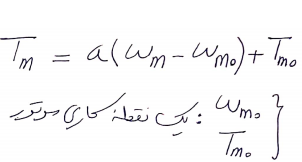 Tm = a(ωm - ωm₀) + Tm₀
ωm₀
Tm₀ } : یک نقطهٔ کاری موتور